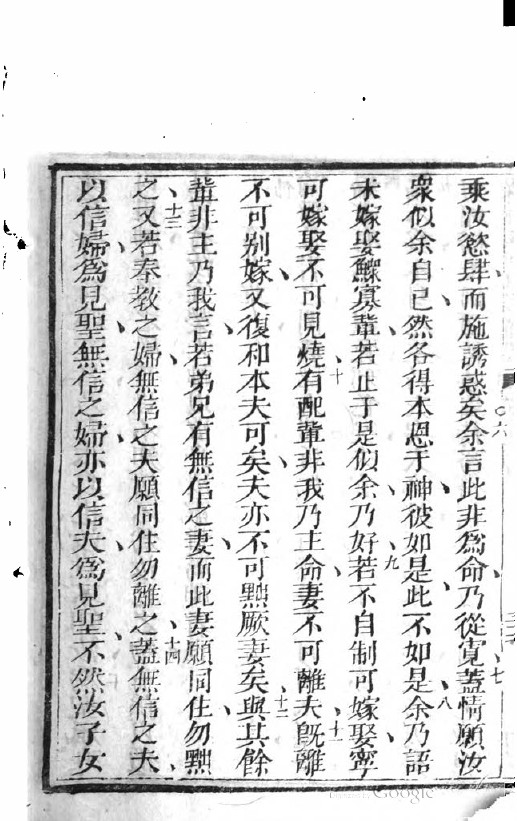 乘汝慾肆而施誘惑矣余言此非為命乃從寬蓋情願汝
七
衆似余自已然各得本恩于神彼如是此不如是余乃語
八
未嫁娶鰥寡輩若止于是似余乃好若不自制可嫁娶寧
九
可嫁娶不可見燒有配輩非我乃主命妻不可離夫既離
十 十一
不可別嫁又復和本夫可矣夫亦不可黜厥妻矣與其餘
十二
輩非主乃我言若弟兄有無信之妻而此妻願同住勿黜
十三
之又若奉教之婦無信之夫願同住勿離之蓋無信之夫
十四
以信婦為見聖無信之婦亦以信夫為見聖不然汝子女
六
Google